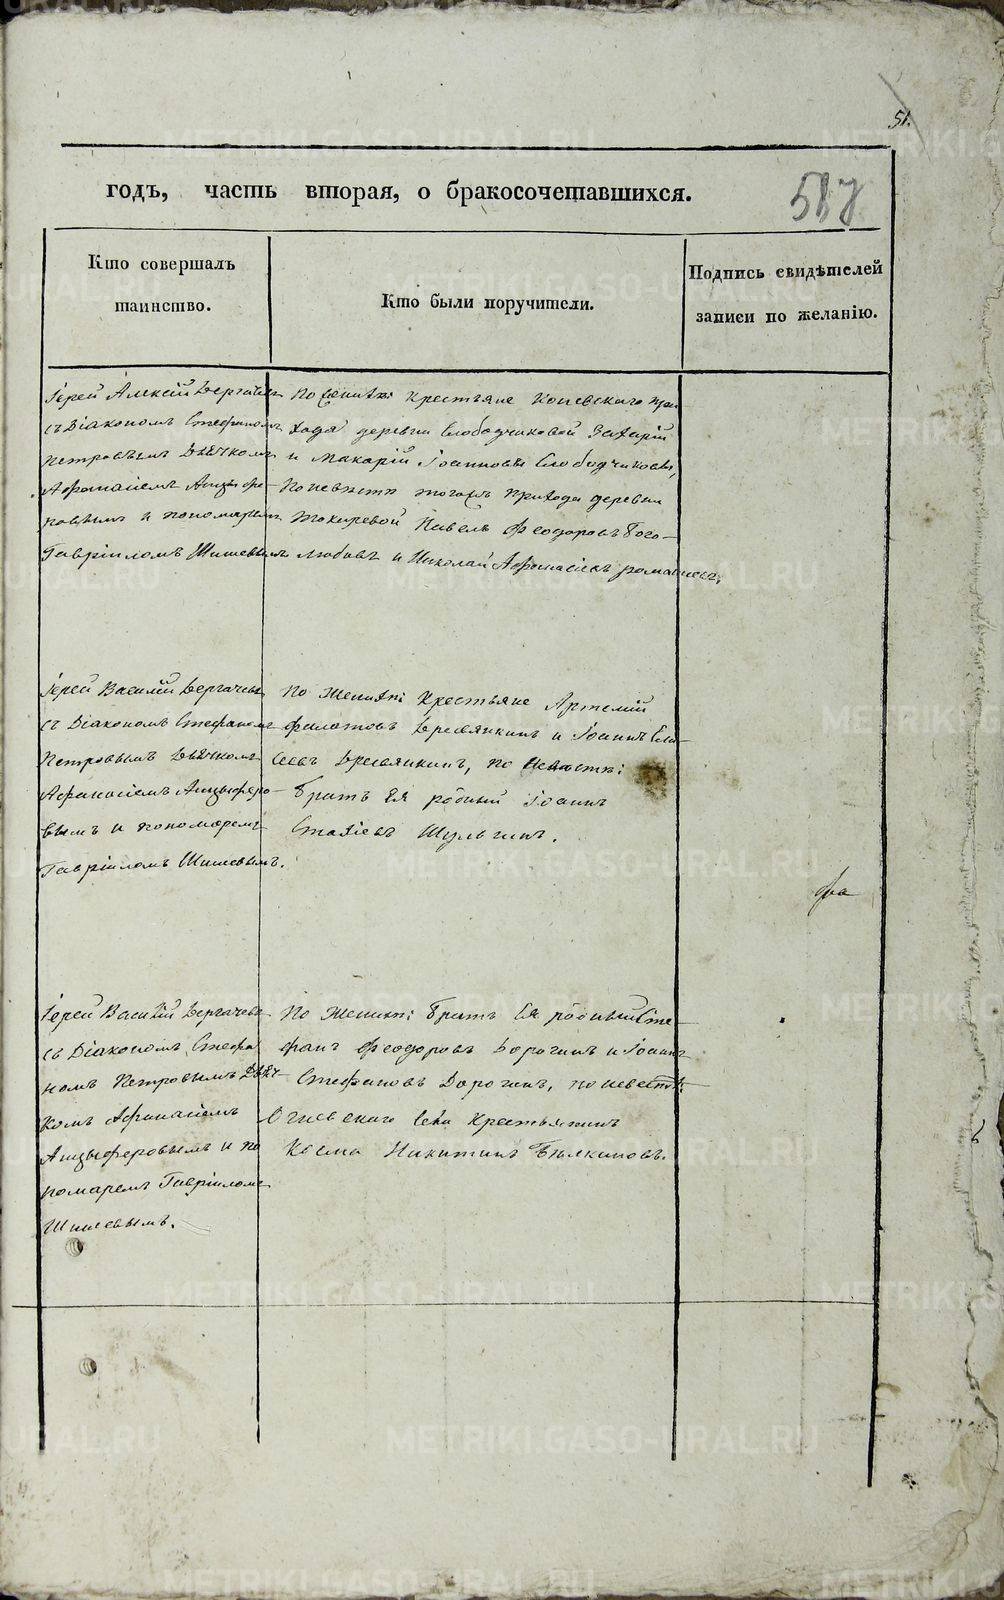 51.
годъ, часть вторая, о бракосочетавшихся.
587
Кто совершалъ
таинство.
Кто были поручители.
Подпись свидѣтелей
записи по желанію.
Іерей Алексій Дергачевъ
съ Діакономъ Стефаномъ
Петровымъ Дьячкомъ
Афанасіемъ Анцыфе-
ровымъ и пономаремъ
Гавріиломъ Шишевымъ
По женихѣ: крестьяне Коневскаго при-
хода деревни Слободчиковой Захарій
и Макарій Іоанновы Слободчиковы,
По невѣстѣ тогожъ прихода деревни
Токаревой Павелъ Феодоровъ Бого-
любовъ и Николай Афонасіевъ
Іерей Василій Дергачевъ
съ Діакономъ Стефаномъ
Петровымъ Дьячкомъ
Афанасіемъ Анцыферо-
вымъ и пономаремъ
Гавріиломъ Шишевымъ.
По женихѣ: Крестьяне Артемій
Филатовъ Дресвянкинъ и Іоаннъ Ели-
сеевъ Дресвянкинъ, по невѣстѣ:
братъ Ея родный Іоаннъ
Стахіевъ Шульгинъ.
Іерей Василій Дергачевъ
съ Діакономъ Стефа
номъ Петровымъ Дьяч
комъ Афанасіемъ
Анцыферовымъ и по
номаремъ Гавріиломъ
Шишевымъ.
По женихѣ: братъ Ея родный Сте-
фанъ Феодоровъ Дорогинъ и Іоаннъ
Стефановъ Дорогинъ, по невѣстѣ:
Огневскаго села Крестьянинъ
Косма Никитинъ Бѣлкиновъ.
METRIKI.GASO-URAL.RU